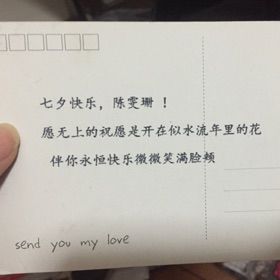 七夕快乐，陈雯珊 ！
愿无上的祝愿是开在似水流年里的花
伴你永恒快乐微微笑满脸颊
send you my love